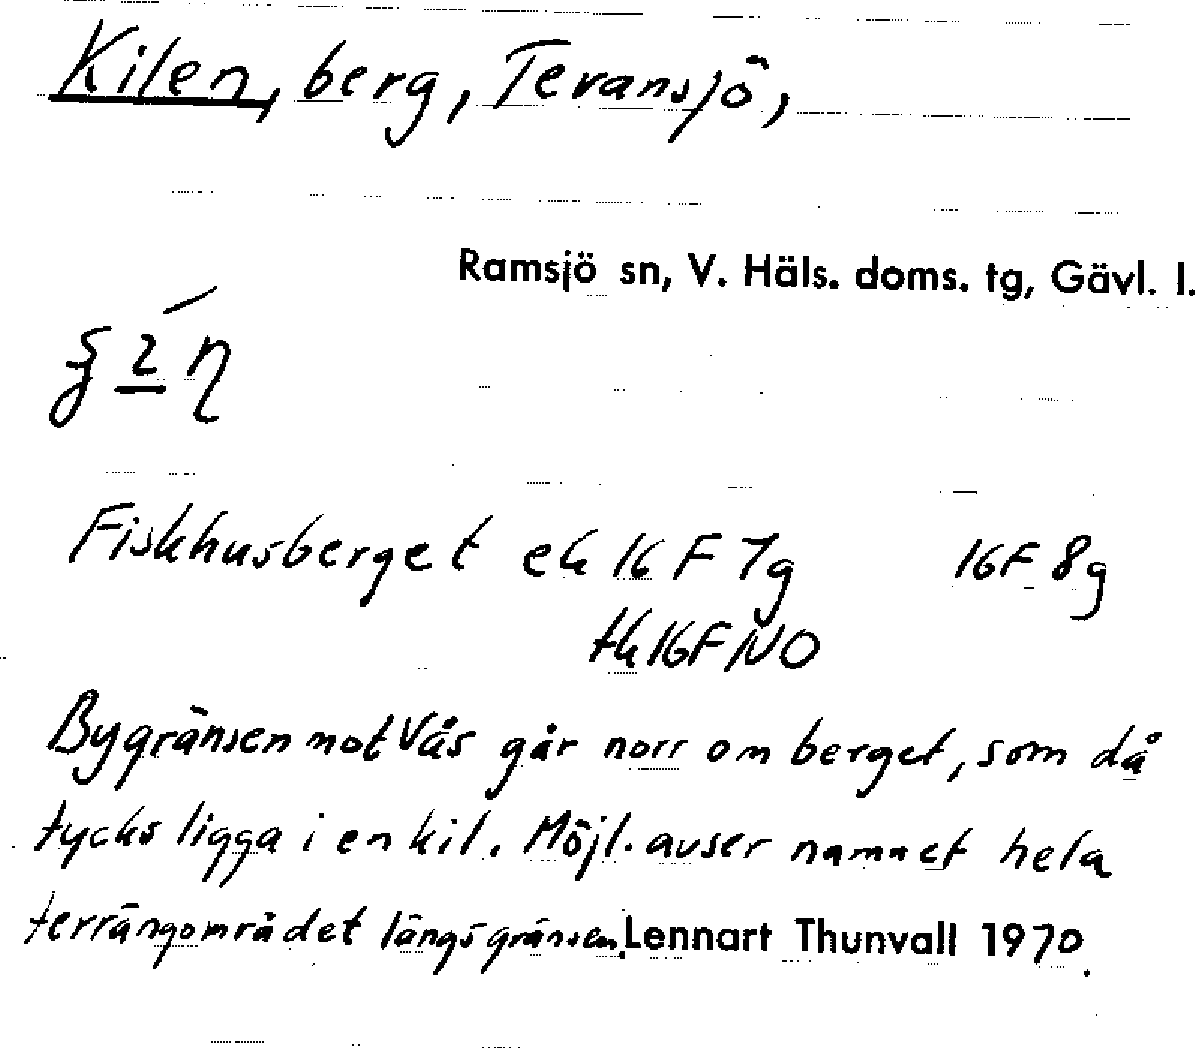 Kilen, berg, Tevansjö,
Ramsjö sn, V. Häls. doms. tg, Gävl. l.
Fiskhusberget ek 16 F 7g 16F 8g
tk 16F NO
Bygränsen mot Vås går norr om berget, som då
tycks ligga i en kil. Möjl. avser namnet hela
terrängområdet längs gränsen. Lennart Thunvall 1970.